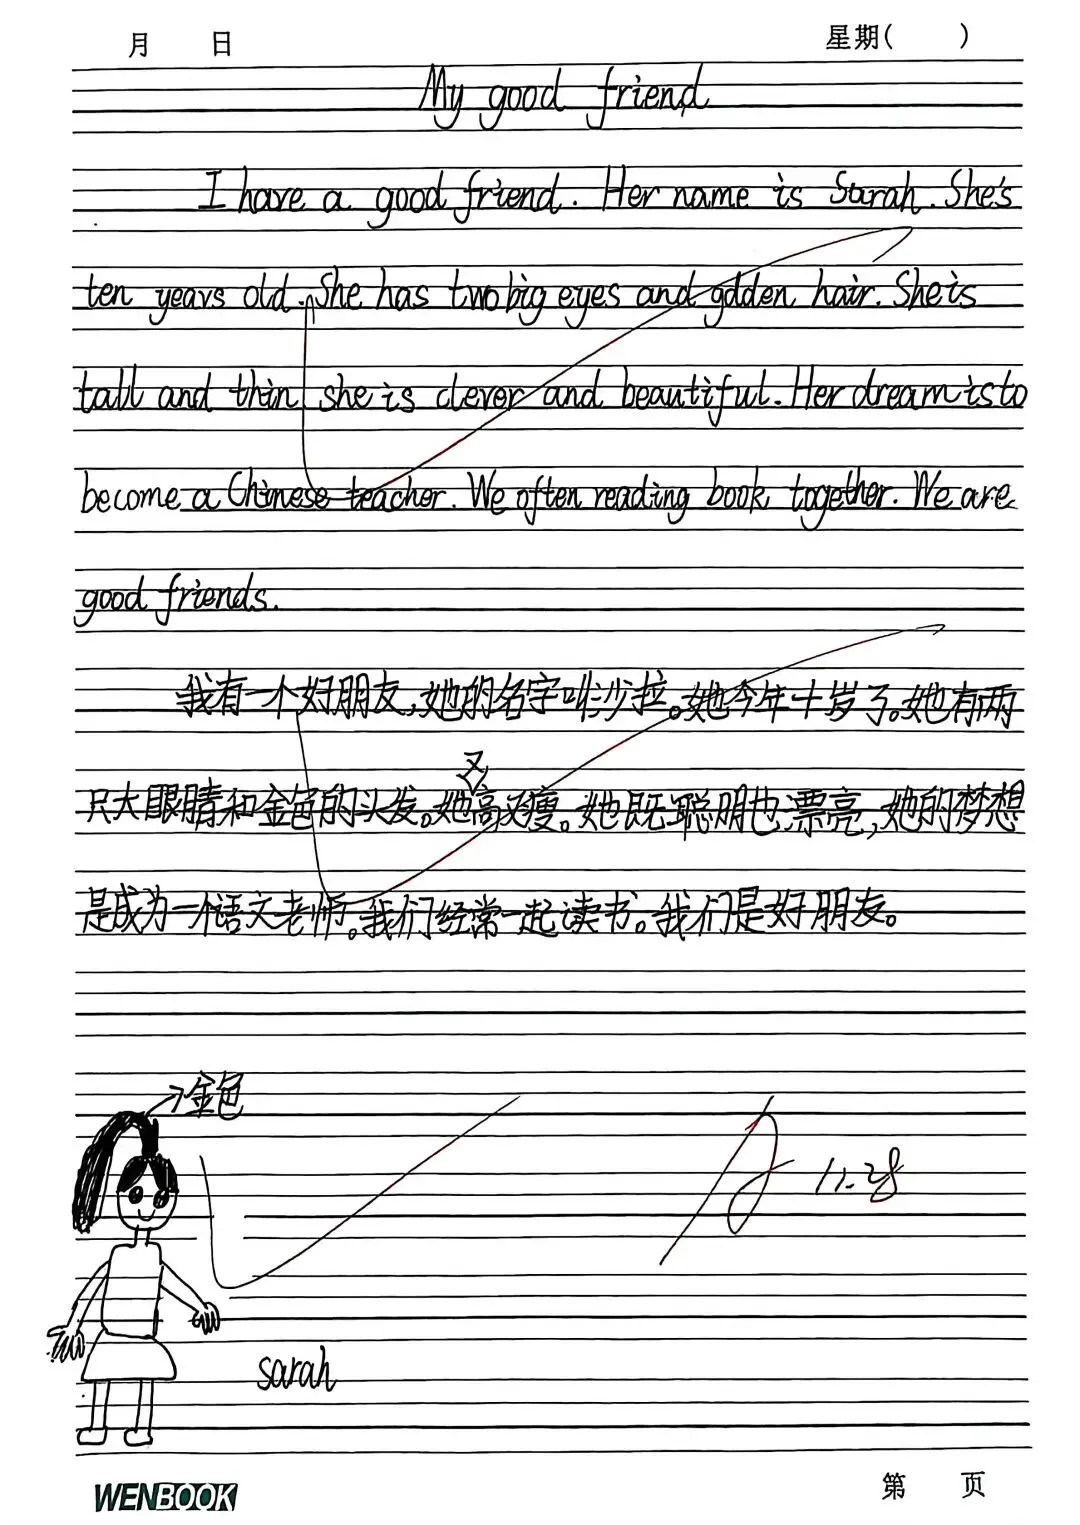 月 日 星期( )
My good friend
I have a good friend. Her name is Sarah. She's
ten years old. She has two big eyes and golden hair. She is
tall and thin she is clever and beautiful. Her dream is to
become a Chinese teacher. We often reading book together. We are
good friends.
我有一个好朋友,她的名字叫沙拉。她今年十岁了。她有两
只大眼睛和金色的头发。她又高又瘦。她既聪明也漂亮,她的梦想
是成为一个语文老师。我们经常一起读书。我们是好朋友。
金色
11.28
sarah
WENBOOK
第 页